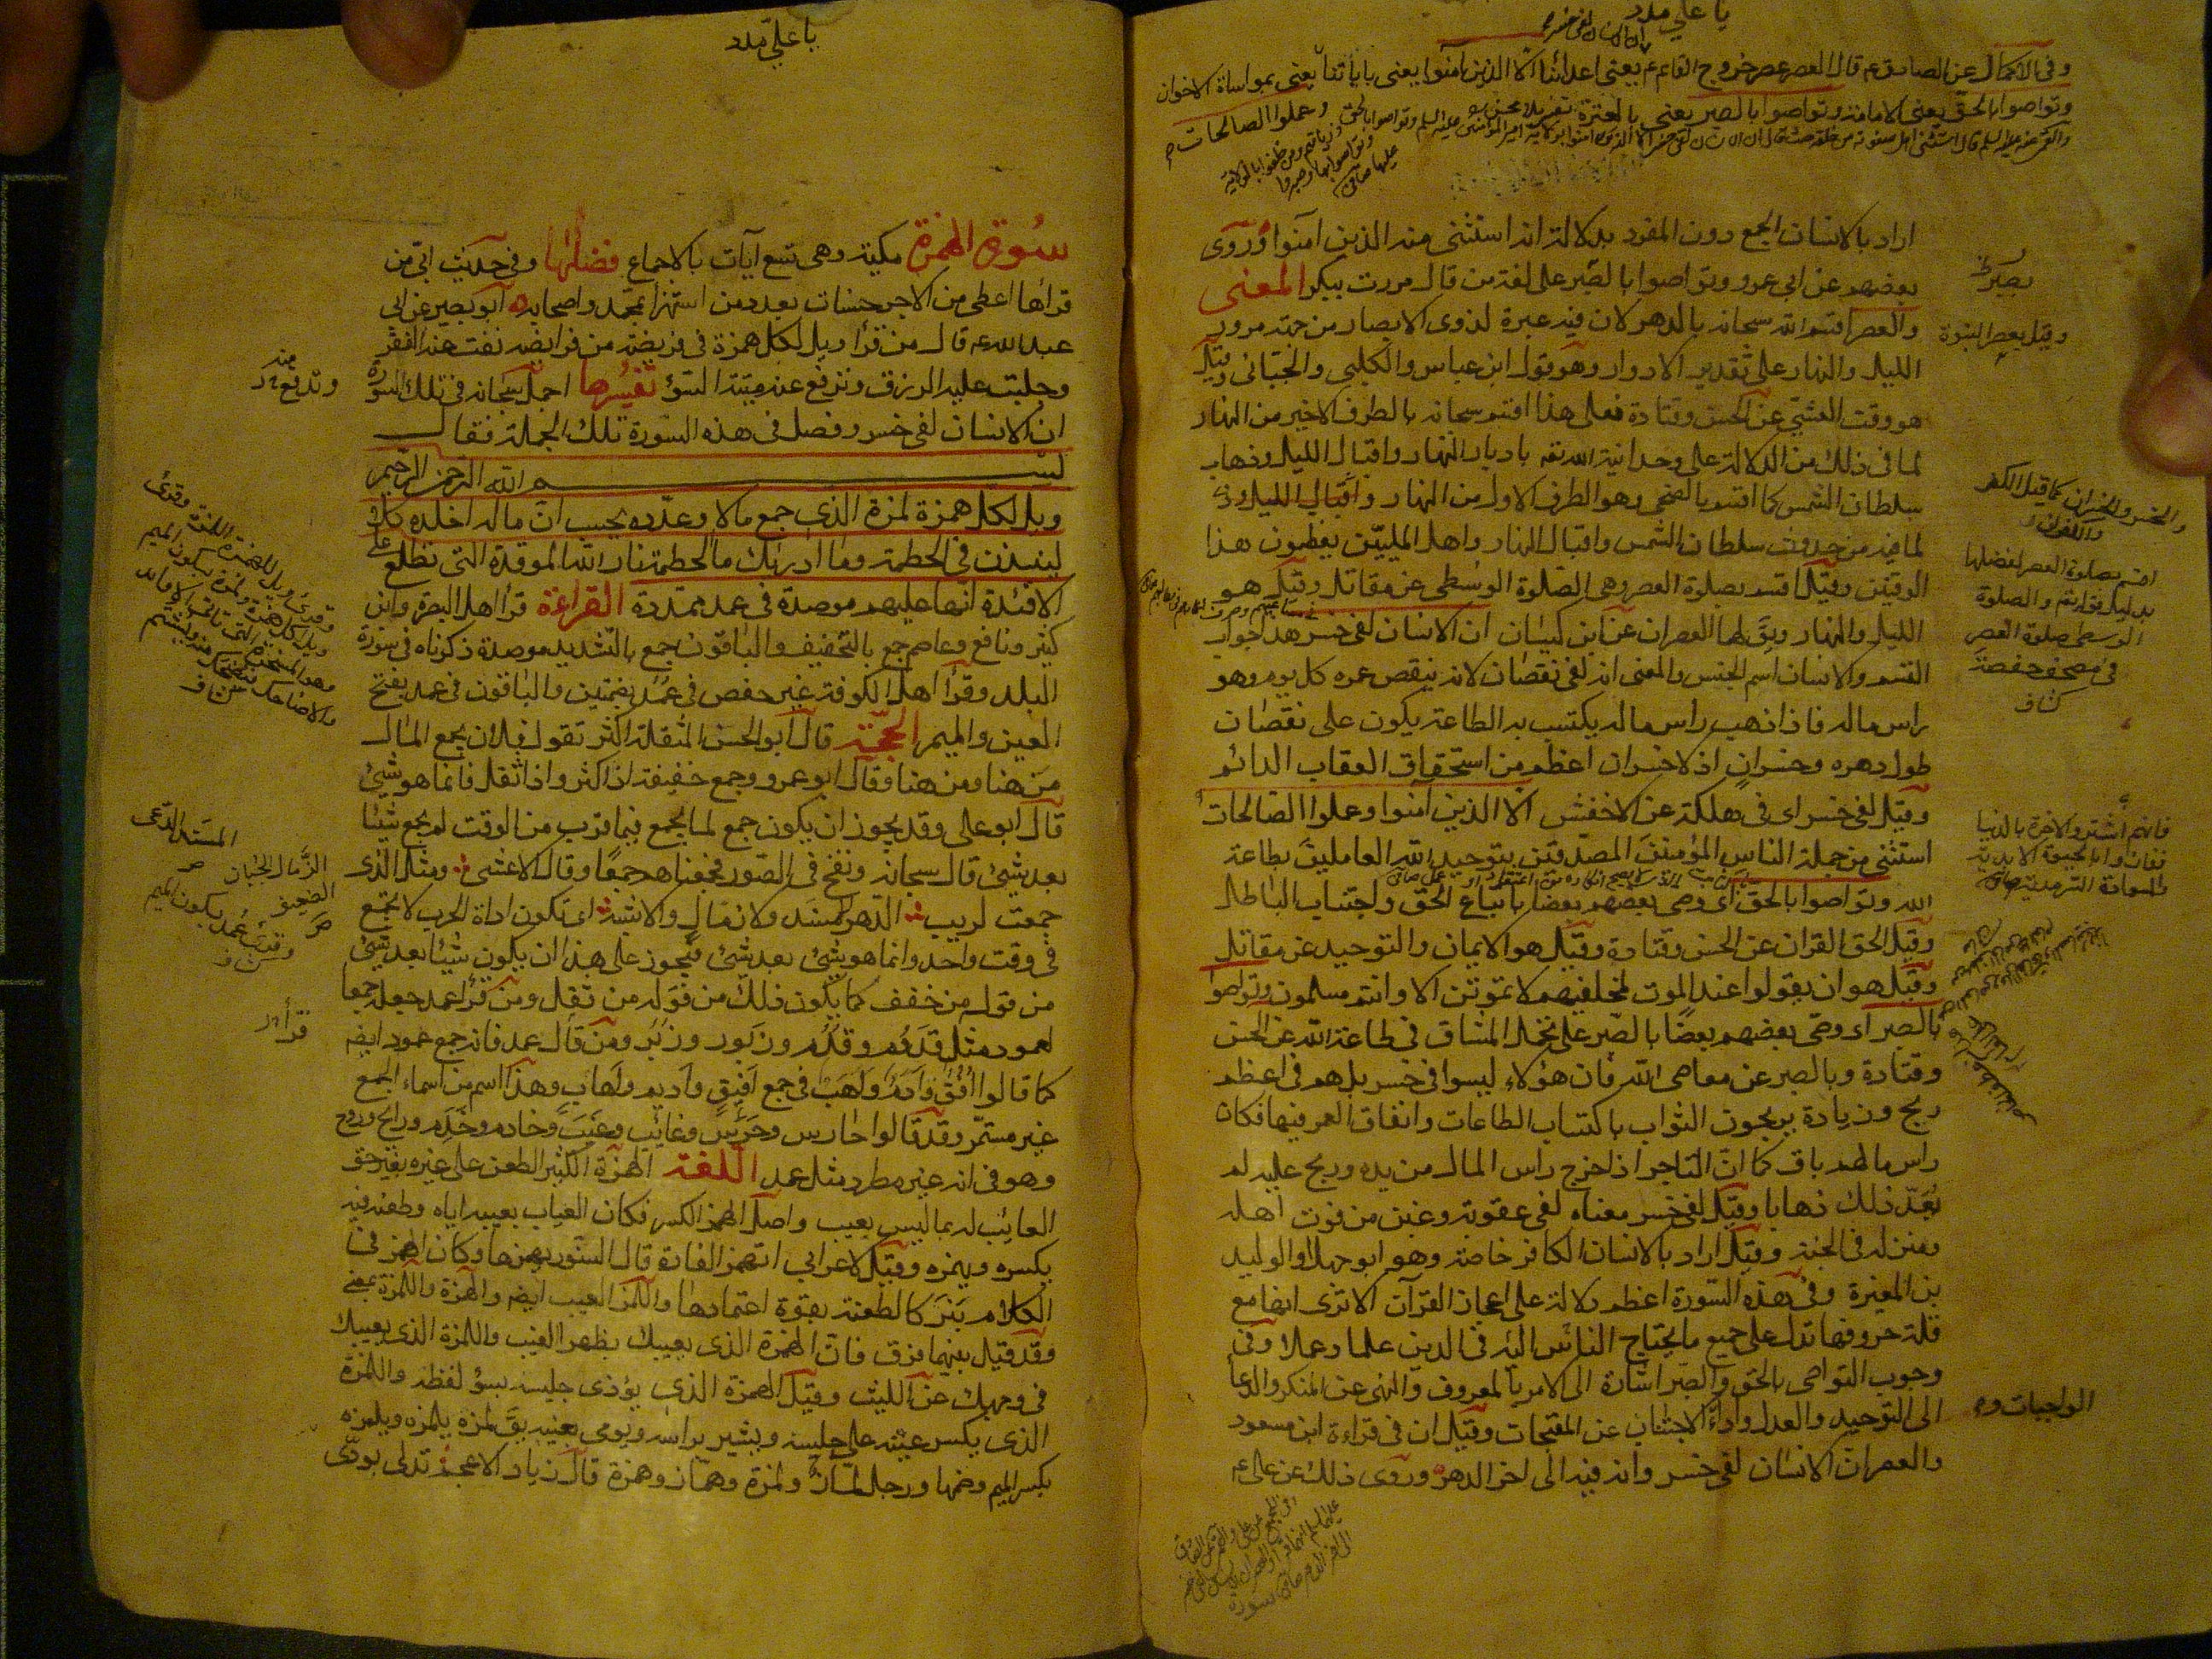 يا علي مدد
وفى الاكمال عن الصادق ع قال العصر عصر خروج القائم ع يعنى اعدائنا الا الذين آمنوا يعنى بآياتنا يعنى بمواساة الاخوان
وتواصوا بالحق يعنى الامامة وتواصوا بالصبر يعنى بالعترة
وعملوا الصالحات
اراد بالانسان الجمع دون المفرد بدلالة انه استثنى منه الذين امنوا وروى
بعضهم عن ابى عمرو وتواصوا بالصبر على لغة من قال مررت ببكر المعنى
والعصر اقسم الله سبحانه بالدهر لان فيه عبرة لذوى الابصار من جهة مرور
الليل والنهار على تقدير الادوار وهو قول ابن عباس والكلبي والجبائى وقيل
هو وقت العشي عن الحسن وقتادة فعلى هذا اقسم سبحانه بالطرف الاخير من النهار
لما فى ذلك من الدلالة على وحدانية الله تعه بادبار النهار واقبال الليل وذهاب
سلطان الشمس كما اقسم بالضحى وهو الطرف الاول من النهار واقبال الليل
لما فيه من حدوث سلطان الشمس واقبال النهار واهل الملتين يعظمون هذا
الوقتين وقيل اقسم بصلوة العصر وهى الصلوة الوسطى عن مقاتل وقيل هو
الليل والنهار ويق لهما العصران عن ابن كيسان ان الانسان لفى خسر هذا جواب
القسم والانسان اسم الجنس والمعنى انه لفى نقصان لانه ينقص عمره كل يوم وهو
راس ماله فاذا ذهب راس ماله يكتسب به الطاعة يكون على نقصان
طول دهره وخسران اذ لا خسران اعظم من استحقاق العقاب الدائم
وقيل لفى خسر اى فى هلكة عن الاخفش الا الذين آمنوا وعملوا الصالحات
استثنى من جملة الناس المؤمنين المصدقين بتوحيد الله العاملين بطاعة
الله وتواصوا بالحق اى وصى بعضهم بعضا باتباع الحق واجتناب الباطل
وقيل الحق القران عن الحسن وقتادة وقيل هو الايمان والتوحيد عن مقاتل
وقيل هو ان يقولوا عند الموت لمخلفيهم لا تموتن الا وانتم مسلمون وتواصوا
بالصبر اى وصى بعضهم بعضا بالصبر على تحمل المشاق فى طاعة الله عن الحسن
وقتادة وبالصبر عن معاصى الله فان هؤلاء ليسوا فى خسر بل هم فى اعظم
ربح وزيادة يربحون الثواب باكتساب الطاعات وانفاق العمر فيها فكان
راس مالهم باق كما ان التاجر اذا خرج راس المال من يده وربح عليه لم
يعد ذلك ذهابا وقيل لفى خسر معناه لفى عقوبة وغبن من فوت اهله
ومنزله فى الجنة وقيل اراد بالانسان الكافر خاصة وهو ابو جهل او الوليد
بن المغيرة وفى هذه السورة اعظم دلالة على اعجاز القرآن الا ترى انها مع
قلة حروفها تدل على جميع ما يحتاج الناس اليه فى الدين علما وعملا وفى
وجوب التواصى بالحق والصبر اشارة الى الامر بالمعروف والنهى عن المنكر والدعاء
الى التوحيد والعدل واداء الاجتناب عن المقبحات وقيل ان فى قراءة ابن مسعود
والعصر ان الانسان لفى خسر وانه فيه الى اخر الدهر وروى ذلك عن على ع
وقيل بعصر النبوة
والخسر والخسران كما قيل الكفر
والكفران
اقسم بصلوة العصر لفضلها
بدليل قوله تعه والصلوة
الوسطى صلوة العصر
فى مصحف حفصة
كشاف
فانهم اشتروا الاخرة بالدنيا
ففازوا بالحيوة الابدية
والسعادة السرمدية صافى
الواجبات و
يا علي مدد
سورة الهمزة مكية وهى تسع آيات بالاجماع فضلها وفى حديث ابى من
قراها اعطى من الاجر حسنات بعدد من استهزأ بمحمد واصحابه ابو بصير عن ابى
عبد الله ع قال من قرأ ويل لكل همزة فى فريضة من فرايضه نفت عنه الفقر
وجلبت عليه الرزق وتدفع عنه ميتة السؤ تفسيرها اجمل سبحانه فى تلك السورة
ان الانسان لفى خسر وفصل فى هذه السورة تلك الجملة فقال
بسم الله الرحمن الرحيم
ويل لكل همزة لمزة الذى جمع مالا وعدده يحسب ان ماله اخلده كلا
لينبذن فى الحطمة وما ادريك ما الحطمة نار الله الموقدة التى تطلع على
الافئدة انها عليهم موصدة فى عمد ممددة القراءة قرأ اهل البصرة وابن
كثير ونافع وعاصم جمع بالتخفيف والباقون جمع بالتشديد موصدة ذكرناه فى سورة
البلد وقرأ اهل الكوفة غير حفص فى عمد بضمتين والباقون فى عمد بفتح
العين والميم الحجة قال ابو الحسن المثقلة اكثر تقول فلان يجمع المال
من هنا ومن هنا وقال ابو عمرو وجمع خفيفة اذا كثر واذا ثقل فانما هو شيئ
قال ابو على وقد يجوز ان يكون جمع لما يجمع فيما قرب من الوقت لم يجمع شيئا
بعد شيئ قال سبحانه ونفخ فى الصور فجمعناهم جمعا وقال الاعشى ومثل الذى
جمعت لريب الدهر لا مسند ولا زمال والاشبه ان تكون اداة الحرب لا تجمع
فى وقت واحد وانما هو شيئ بعد شيئ فيجوز على هذا ان يكون شيئا بعد شيئ
من قول من خفف كما يكون ذلك من قول من ثقل ومن قرأ عمد جعله جمعا
لعمود مثل قدوم وقدم وزبور وزبر ومن قال عمد فانه جمع عمود ايضه
كما قالوا افق وادم ولهب فى جمع افيق واديم ولهاب وهذا اسم من اسماء الجمع
غير مستمر وقد قالوا حارس وحرس وغائب وغيب وخادم وخدم ورايح وروح
وهو فى انه غير مطرد مثل عمد اللغة الهمزة الكثير الطعن على غيره بغير حق
العائب له بما ليس بعيب واصل الهمز الكسر فكان العياب بعيبه اياه وطعنه فيه
يكسره ويهمزه وقيل لاعرابى اتهمز الفارة قال السنور يهمزها وكان الهمز فى
الكلام نبر كالطعنة بقوة اعتمادها واللمز العيب ايضه والهمزة واللمزة بمعنى
وقد قيل بينهما فرق فان الهمزة الذى يعيبك بظهر الغيب واللمزة الذى يعيبك
فى وجهك عن الليث وقيل الهمزة الذى يؤذى جليسه بسؤ لفظه واللمزة
الذى يكسر عينه على جليسه ويشير براسه ويومى بعينه يق لمزه يلمزه ويلمزه
بكسر الميم وضمها ورجل لماز ولمزة وهماز وهمزة قال زياد الاعجم تدلى بودى
وتدفع
المسند الدعى
الزمال الجبان
الضعيف
ص
وقرئ عمد بسكون الميم
كشاف
قرأ